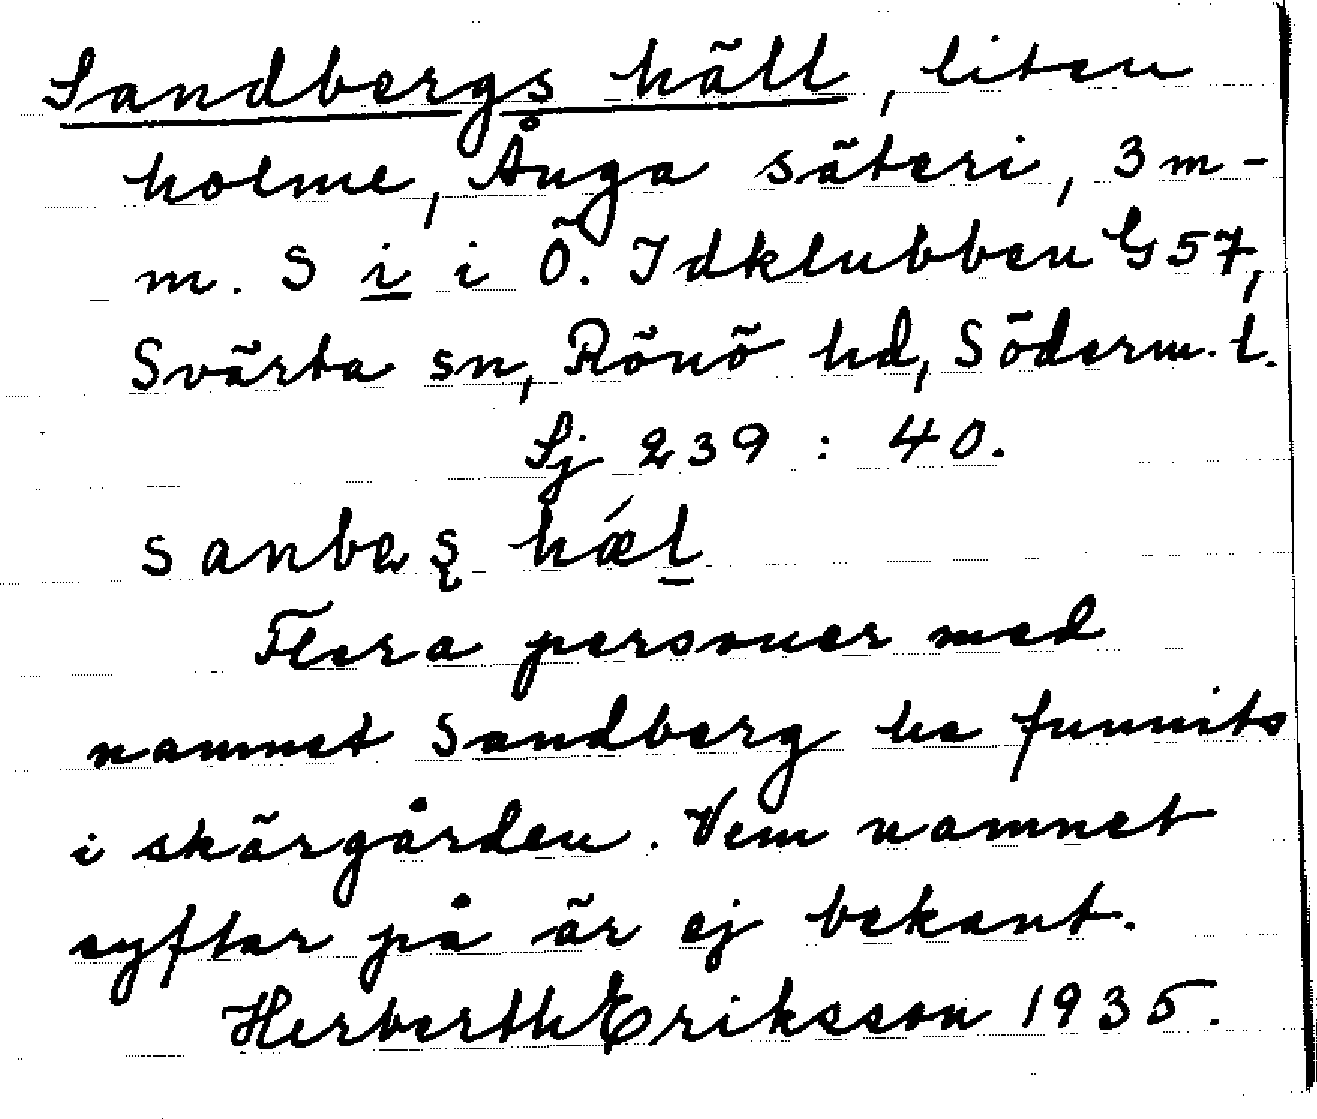 Sandbergs häll, liten
holme, Ånga säteri, 3 m-
m. S i i Ö. Idklubben G57,
Svärta sn, Rönö hd, Söderm. l.
Sj 239 : 40.
Flera personer med
namnet Sandberg ha funnits
i skärgården. Vem namnet
syftar på är ej bekant.
Herberth Eriksson 1935.